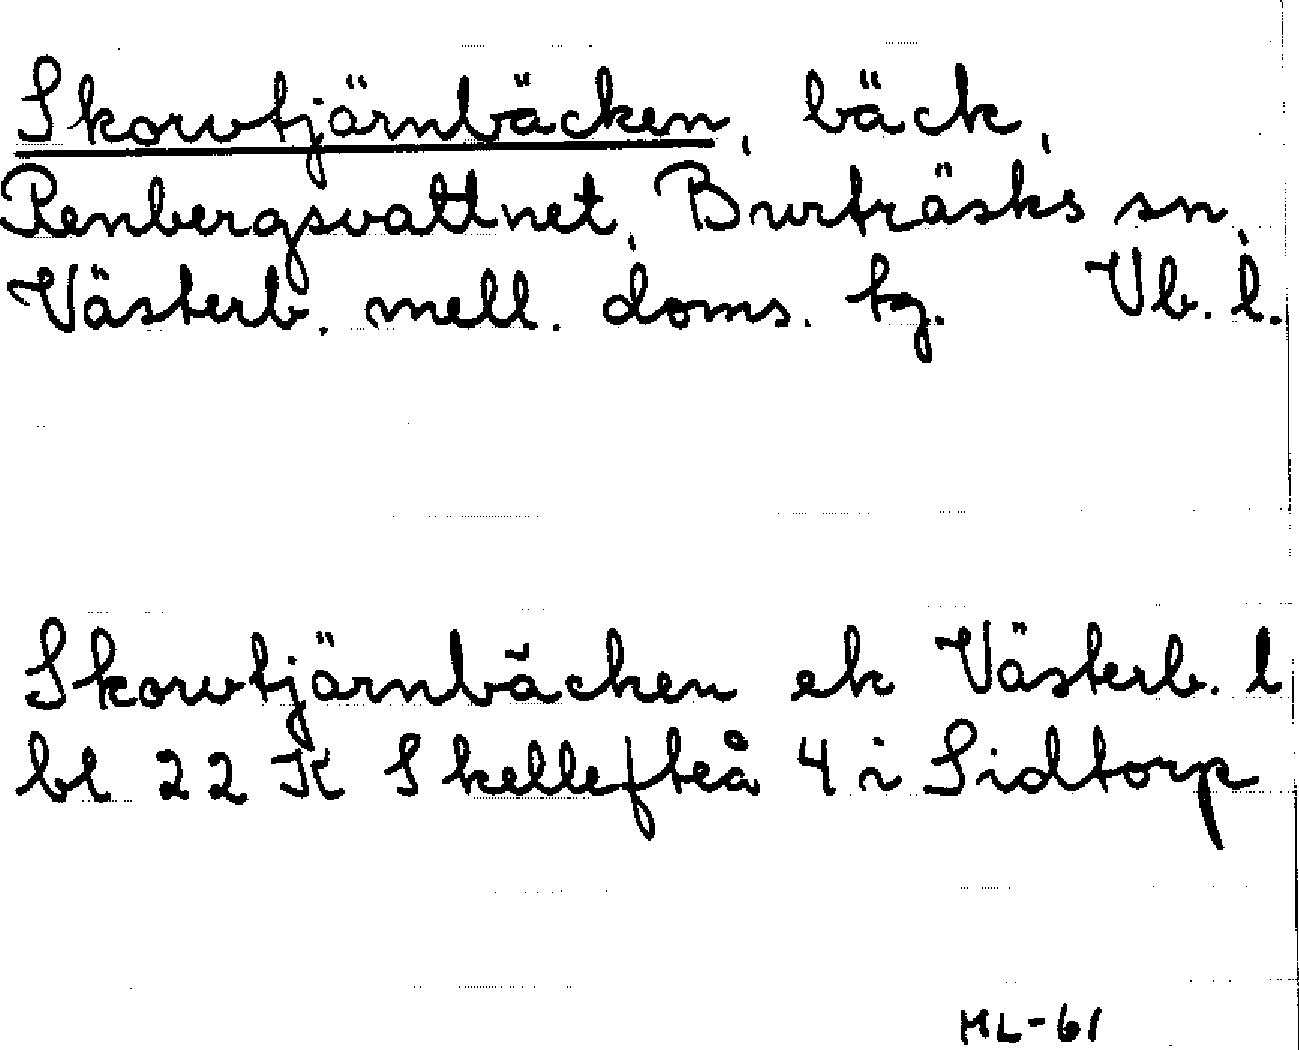 Skorvtjärnbäcken, bäck,
Renbergsvattnet, Burträsks sn,
Västerb. mell. doms. tg. Vb. l.
Skorvtjärnbäcken ek Västerb. l
bl 22 K Skellefteå 4 i Sidtorp
HL-61